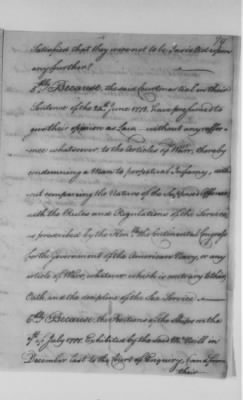 Satisfied that they were not to be
any further.
5thly Because, the said Court martial in their
Sentence of the 24th June 1778. have presumed to
give their opinion as Law without any reffer-
ence whatsoever to the Articles of War, thereby
condemning a Man to perpetual Infamy, with-
out comparing the Nature of the Supposed Offence,
with the Rules and Regulations of the Service,
as prescribed by the Honble the Continental Congress
for the Government of the American Navy, or any
article of War, whatever which is contrary to their
Oath, and the discipline of the Sea Service.
6thly Because, the Positions of the Ships on the
of July 1777. Exhibited by the said Mr
December last to the Court of Enquiry, (and from
their